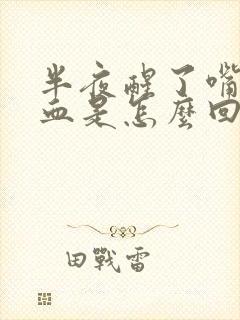 半夜醒了嘴
血是怎麼回
田戰雷